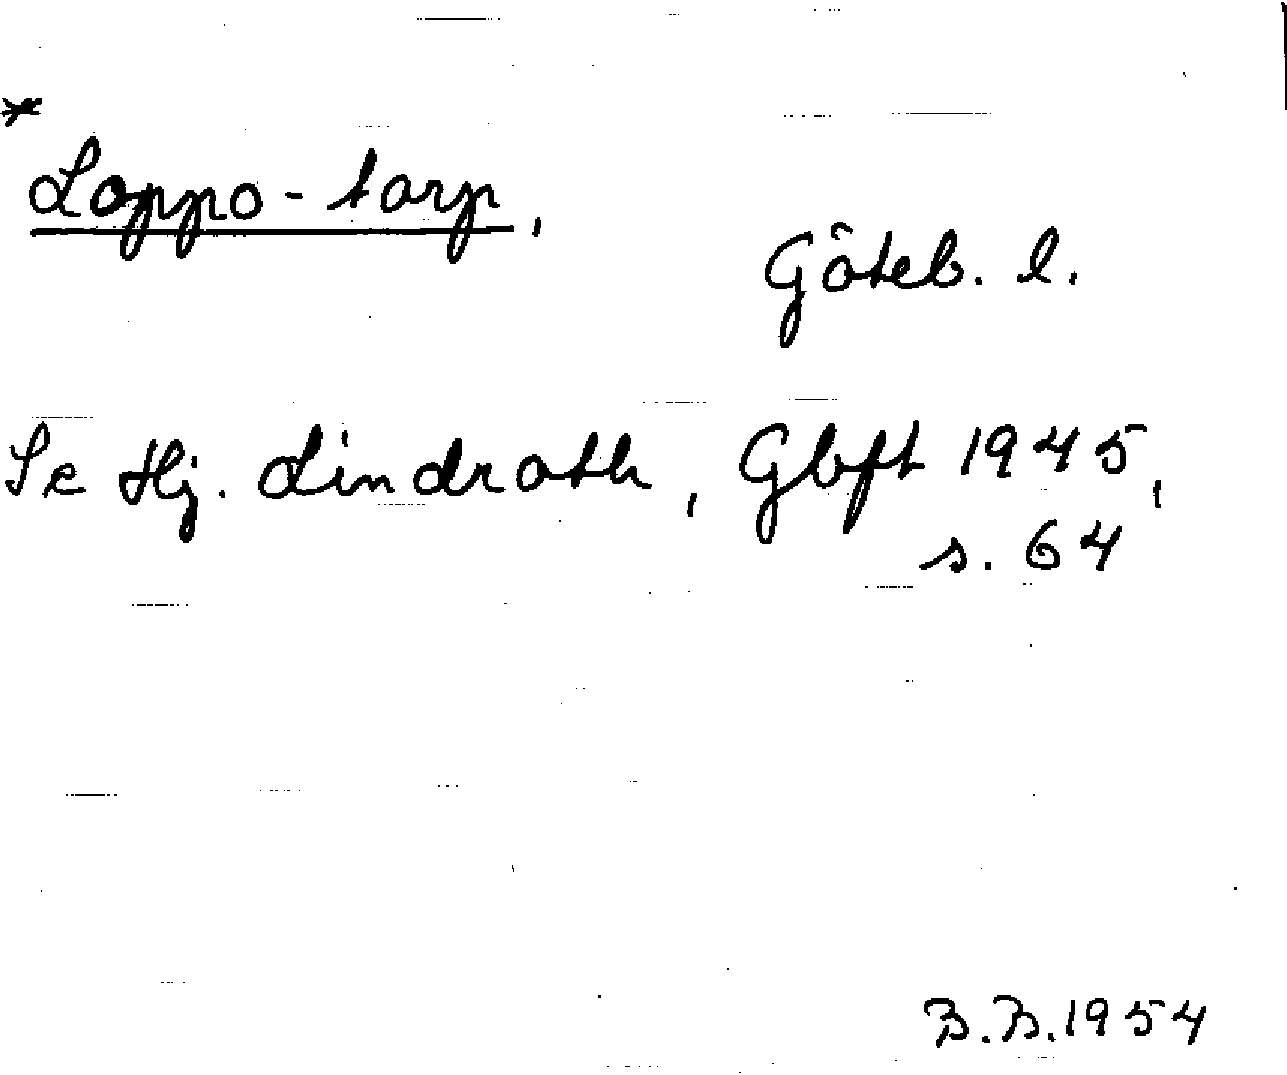 *
Loppo-torp,
Göteb. l.
Se Hj. Lindroth, Gbft 1945,
s. 64
B.B. 1954